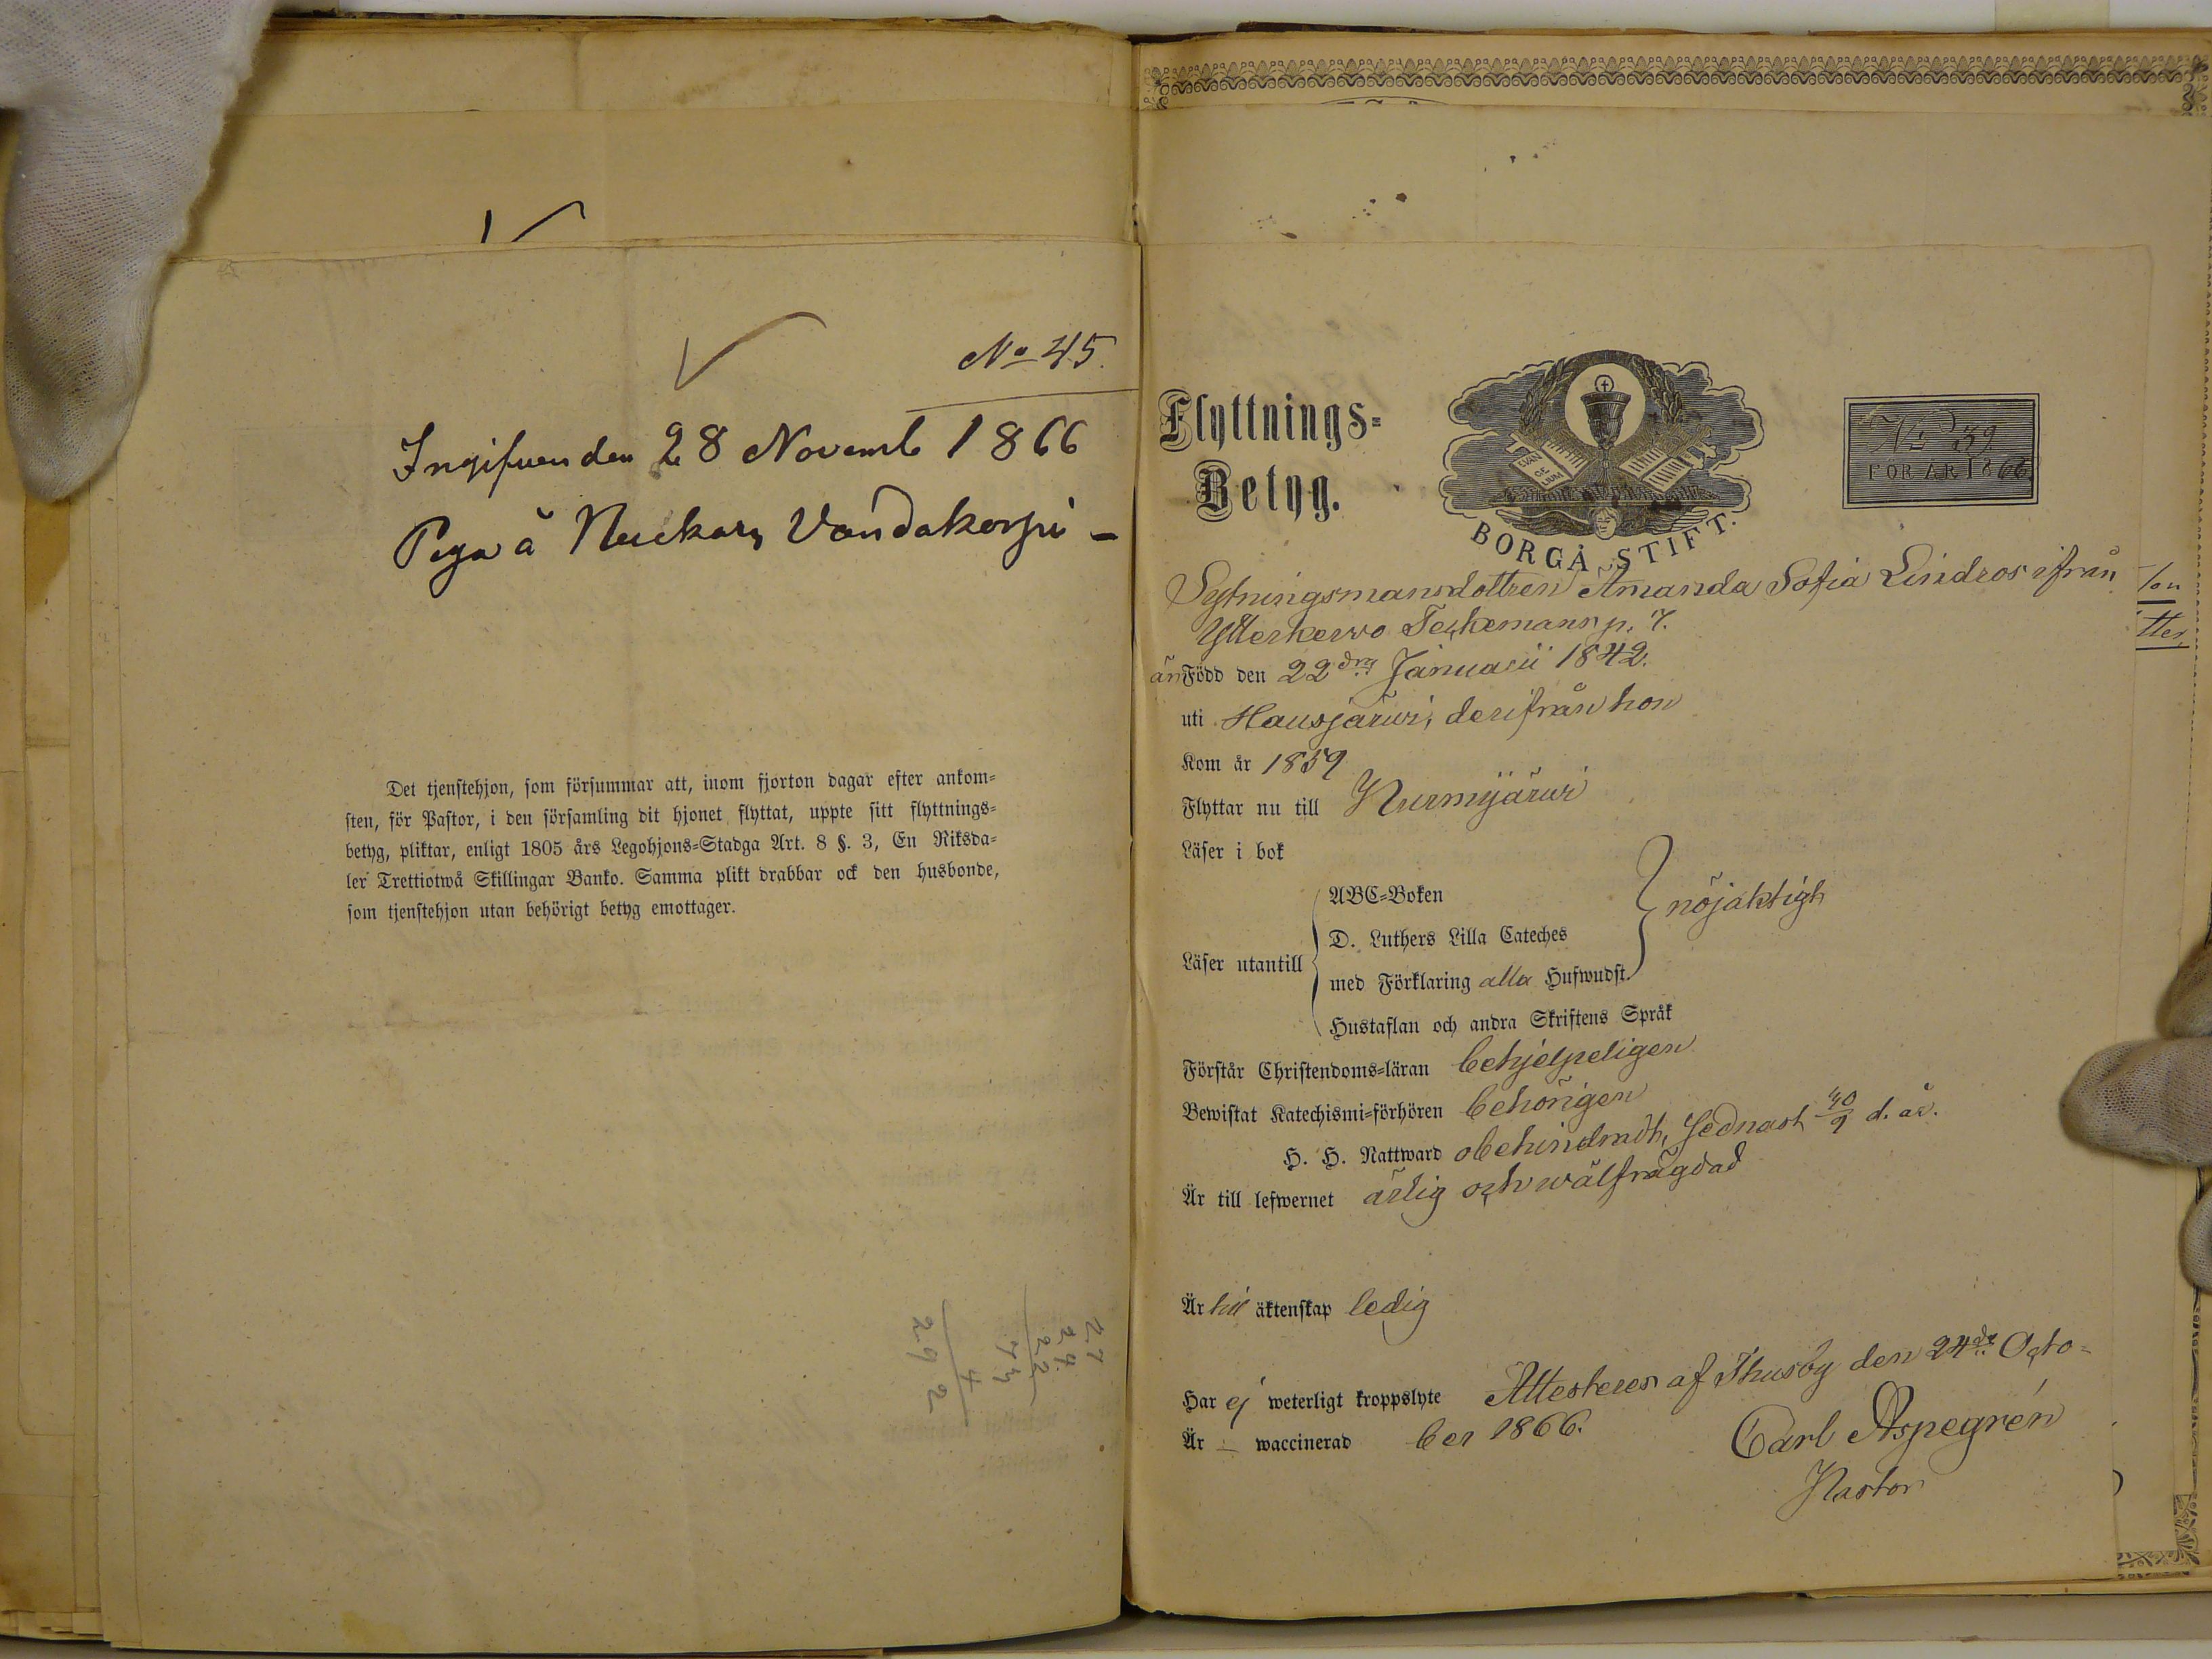 No 45.
Ingifven den 28 Novemb 1866
Piga å Nuckars Vandakorpi -
Det tjenstehjon, som försummar att, inom fjorton dagar efter ankom=
sten, för Pastor, i den församling dit hjonet flyttat, uppte sitt flyttnings=
betyg, pliktar, enligt 1805 års Legohjons=Stadga Art. 8 §. 3, En Riksda=
ler Trettiotwå Skillingar Banko. Samma plikt drabbar ock den husbonde,
som tjenstehjon utan behörigt betyg emottager.
4
292
Flyttnings=
Betyg.
EVAN
GE
LIUM
BORGÅ STIFT.
No 39
FÖR ÅR 1866
Sytningsmansdottren Amanda Sofia Lindros ifrån
Ytterkervo Teckemans p. 7.
är Född den 22dra Januarii 1842.
uti Hausjärwi, derifrån hon
Kom år 1859
Flyttar nu till Nurmijärwi
Läser i bok
Läser utantill
ABC=Boken
D. Luthers Lilla Cateches
med Förklaring alla Hufwudst.
nöjaktigt
Hustaflan och andra Skriftens Språk
Förstår Christendoms=läran behjelpeligen
Bewistat Katechismi=förhören behörigen
H. H. Nattward obehindradt, sednast 30/9 d. år.
Är till lefwernet ärlig och wälfrägdad
Är till äktenskap ledig
Har ej weterligt kroppslyte Attesteres af Thusby den 24de Octo=
Är – waccinerad ber 1866.
Carl Aspegrén
Pastor